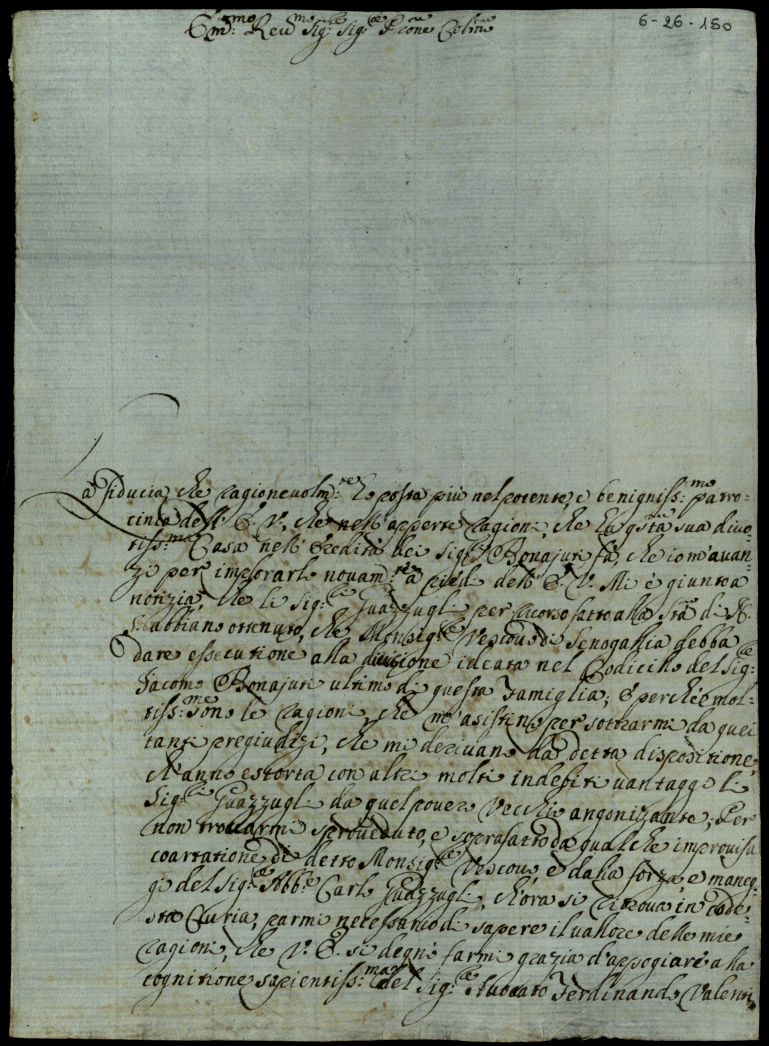 6-26-150
Em:mo Reu:mo Sig:re Sig:re Prone Colmo
La fiducia, che ragionevolm:te ho posta più nel potente, e benigniss:mo patro-
cinio dell' E. V., che nell' apperte ragioni, che hà q̃sta sua divo-
tiss:ma Casa nell' Eredità dei Sig:ri Bonajuti fà, che io m'avan-
zi per implorarlo novam:te a piedi dell' E. V. Mi è giunta
notizia, che li Sig:ri Guazzugli per ricorso fatto alla Stà di N.
S. abbiano ottenuto, che Monsig:re Vescovo di Senogallia debba
dare essecutione alla divisione ideata nel Codicillo del Sig:re
Giacomo Bonajuti ultimo di questa Famiglia; E perche mol-
tiss:me sono le ragioni, che m'asistino per sottrarmi da quei
tanti pregiudizi, che mi derivano da detta dispositione
ch'anno estorta con altri molti indebiti vantaggi li
Sig:ri Guazzugli da quel povero Vecchio angonizante; Per
non trovarmi sproveduto, e soprafatto da qualche improvisa
coartatione di detto Monsig:re Vescovo, e dalla forza, e maneg-
gi del Sig:re Abb:e Carlo Guazzugli, ch'ora si ritrova in code-
sta Curia, parmi necessario di sapere il vallore delle mie
ragioni, che V. E. si degni farmi grazia d'appogiare alla
cognitione sapientiss:ma del Sig:re Avvocato Ferdinando Valenti,